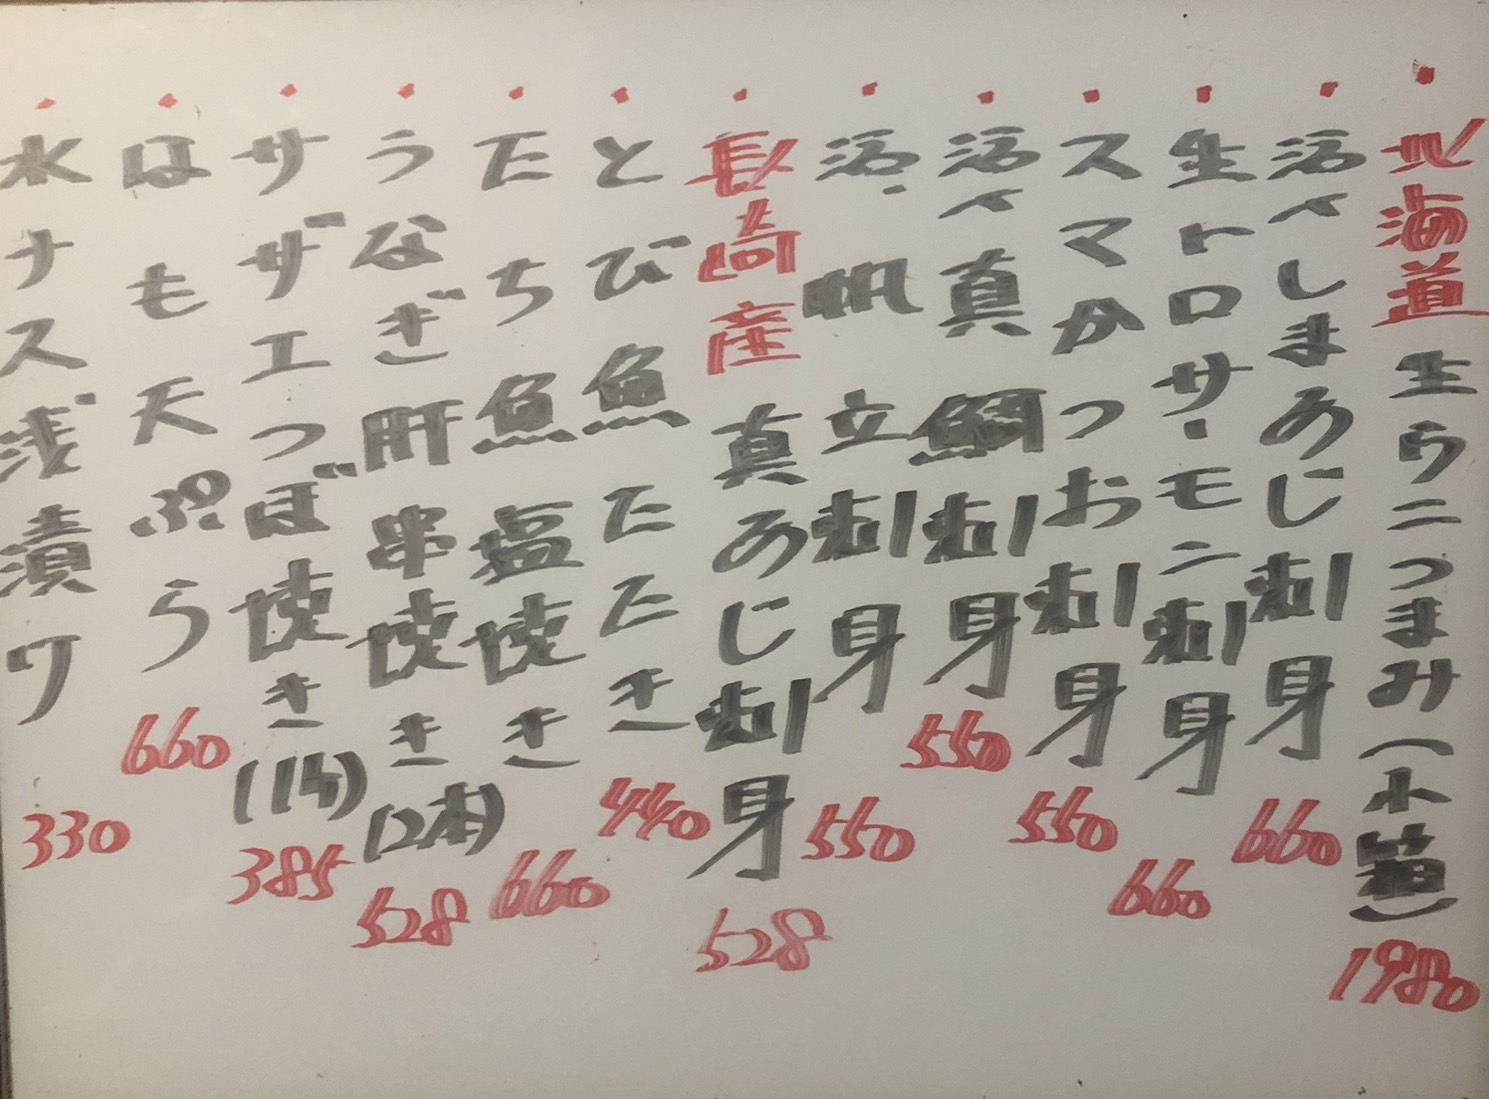 ・北海道生ウニつまみ(小箱) 1980
・活〆しまあじ刺身 660
・生トロサーモン刺身 660
・スマかつお刺身 550
・活〆真鯛刺身 550
・活帆立刺身 550
・長崎産真あじ刺身 528
・とび魚たたき 440
・たち魚塩焼き 660
・うなぎ肝串焼き(2本) 528
・サザエつぼ焼き(1ケ) 385
・はも天ぷら 660
・水ナス浅漬ケ 330